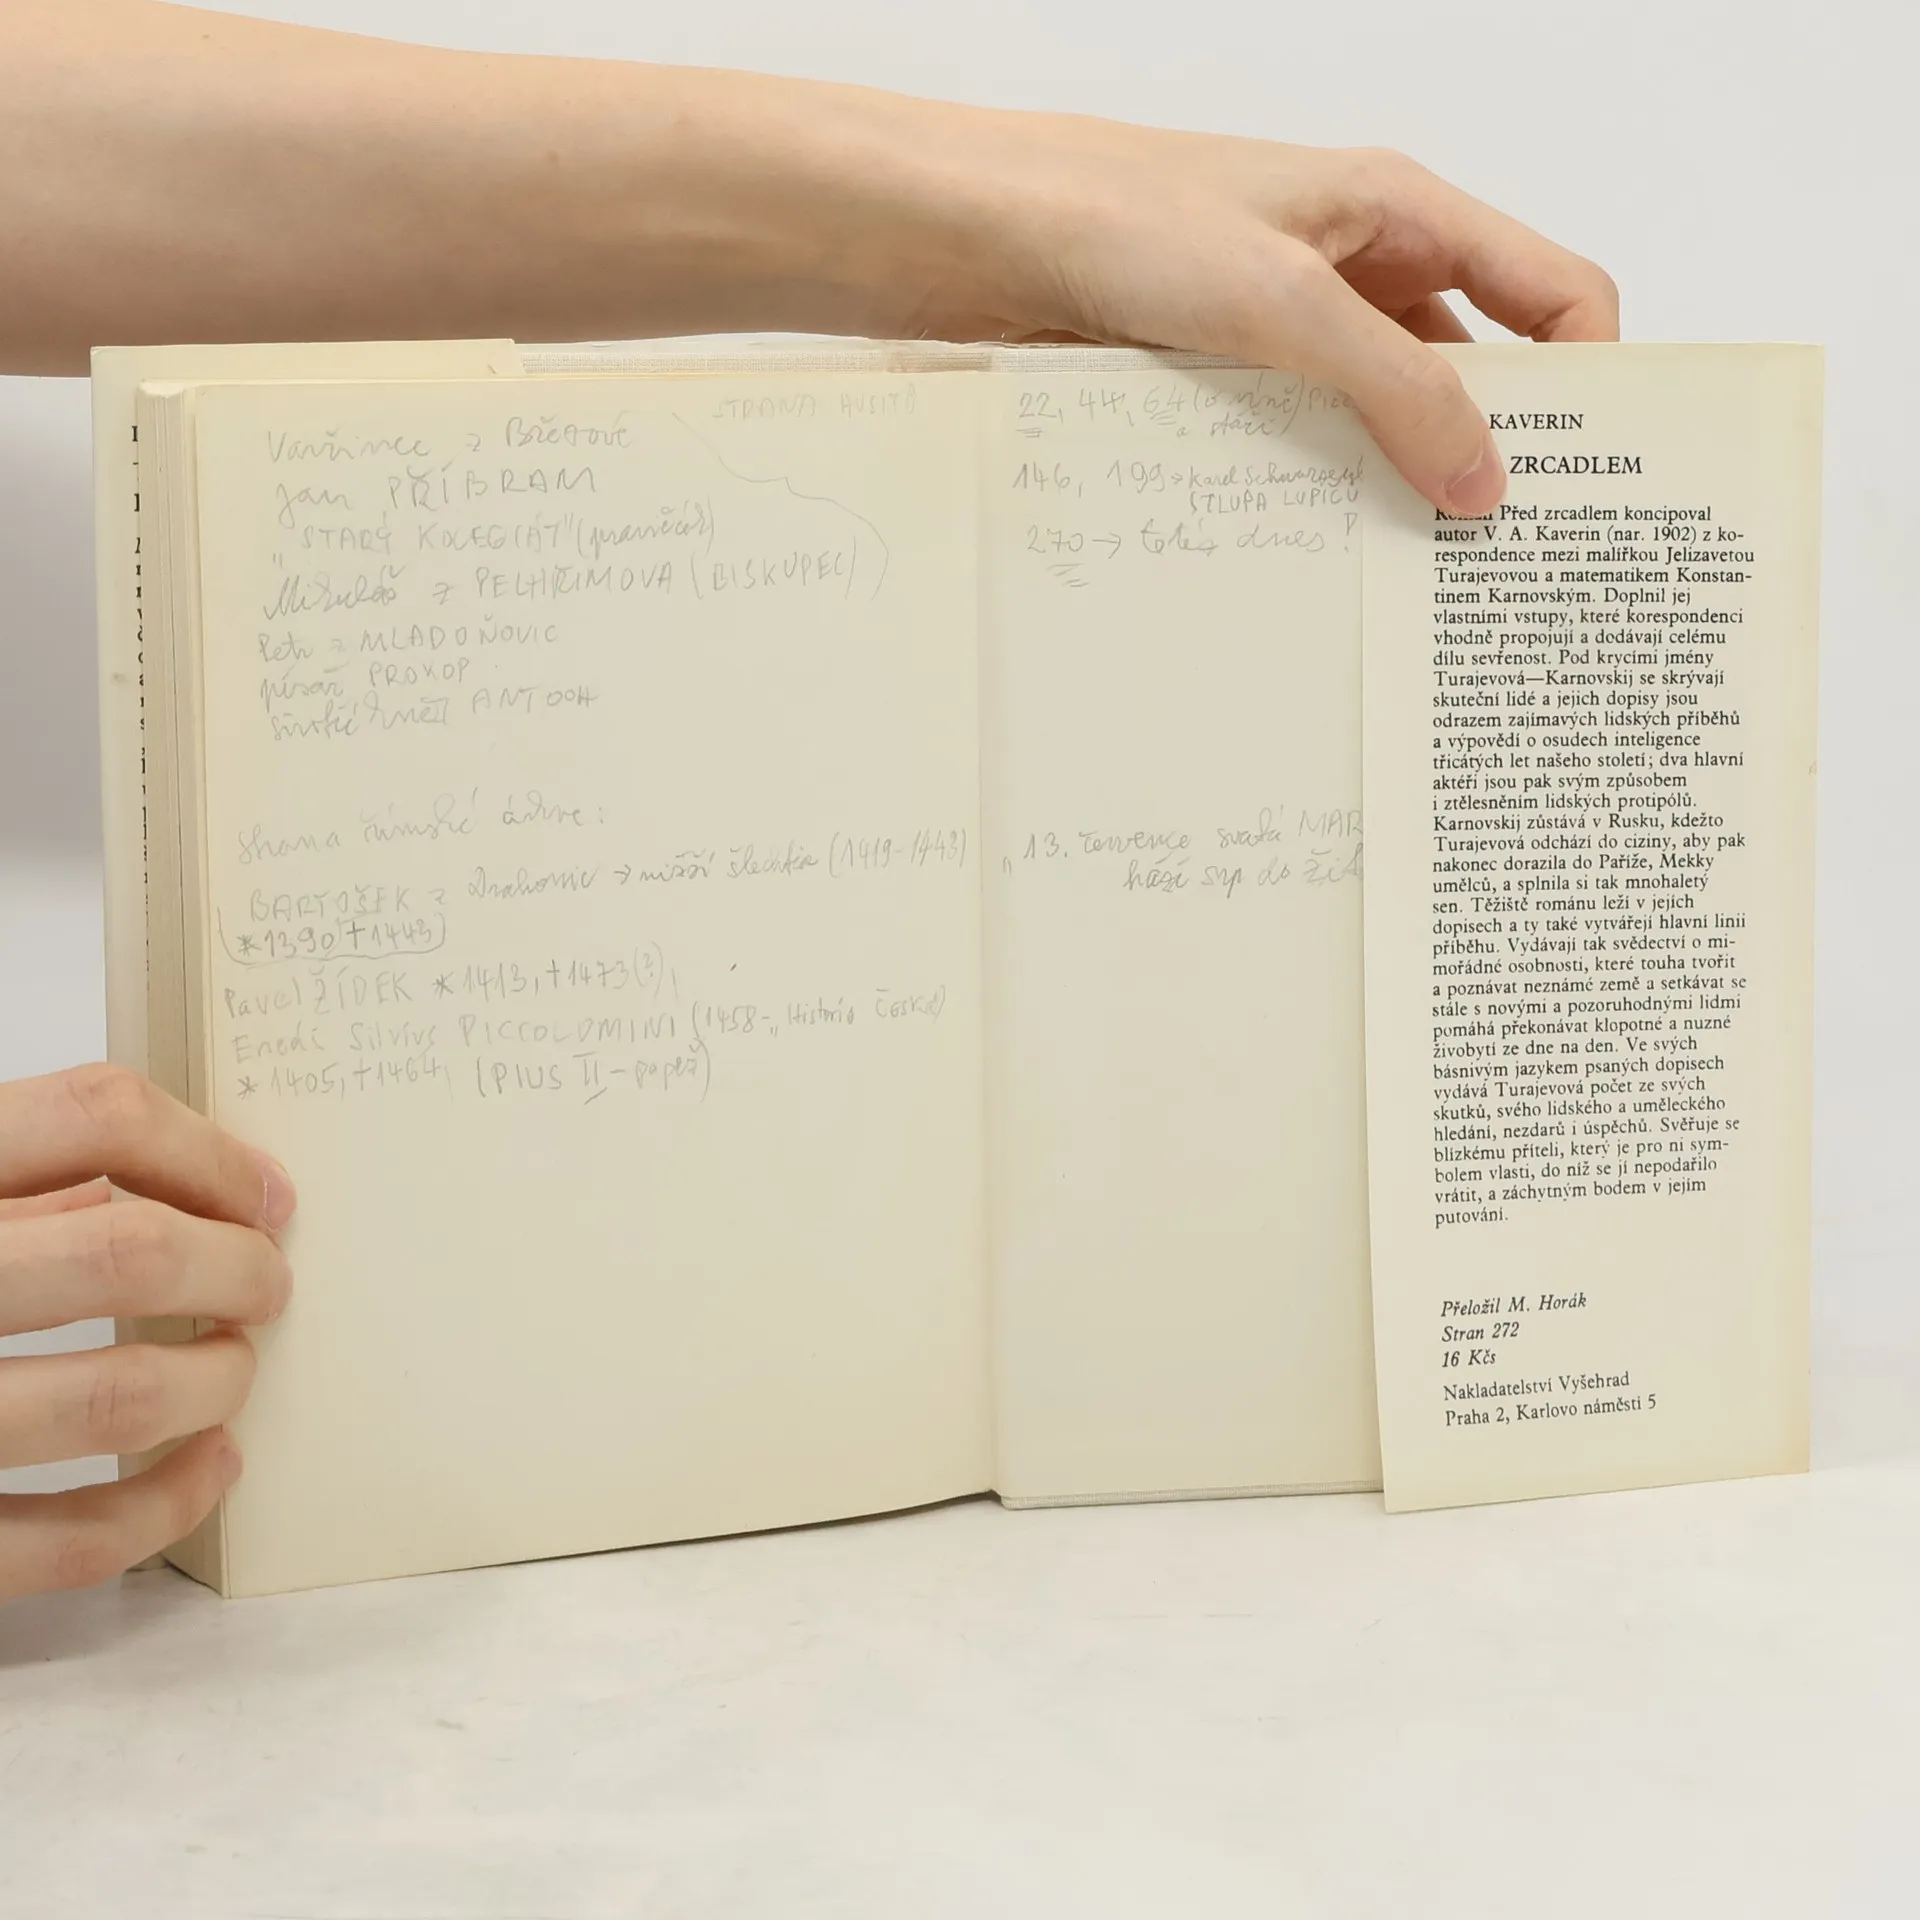 STRANA HUSITŮ
Vavřinec z Březové
Jan PŘÍBRAM
"STARÝ KOLEGIÁT" (
Mikuláš z PELHŘIMOVA (BISKUPEC)
Petr z MLADOŇOVIC
písař PROKOP
sirotčí kněz ANTOCH
Strana římské církve:
BARTOŠEK z Drahonic → nižší šlechtic (1419-1443)
*1390 †1443)
Pavel ŽÍDEK *1413, †1473(?),
Eneáš Silvius PICCOLOMINI (1458-„Historie Česká)
* 1405, †1464, (PIUS II - papež)
22, 44, 64 (o víně) Picc
a stáří
146, 199 → Karel Schwarzenb
STLUPA LUPIČŮ
270 → totéž dnes!
„13. července svatá MAR
hází srp do žit
KAVERIN
ZRCADLEM
Román Před zrcadlem koncipoval
autor V. A. Kaverin (nar. 1902) z ko-
respondence mezi malířkou Jelizavetou
Turajevovou a matematikem Konstan-
tinem Karnovským. Doplnil jej
vlastními vstupy, které korespondenci
vhodně propojují a dodávají celému
dílu sevřenost. Pod krycími jmény
Turajevová—Karnovskij se skrývají
skuteční lidé a jejich dopisy jsou
odrazem zajímavých lidských příběhů
a výpovědí o osudech inteligence
třicátých let našeho století; dva hlavní
aktéři jsou pak svým způsobem
i ztělesněním lidských protipólů.
Karnovskij zůstává v Rusku, kdežto
Turajevová odchází do ciziny, aby pak
nakonec dorazila do Paříže, Mekky
umělců, a splnila si tak mnohaletý
sen. Těžiště románu leží v jejích
dopisech a ty také vytvářejí hlavní linii
příběhu. Vydávají tak svědectví o mi-
mořádné osobnosti, které touha tvořit
a poznávat neznámé země a setkávat se
stále s novými a pozoruhodnými lidmi
pomáhá překonávat klopotné a nuzné
živobytí ze dne na den. Ve svých
básnivým jazykem psaných dopisech
vydává Turajevová počet ze svých
skutků, svého lidského a uměleckého
hledání, nezdarů i úspěchů. Svěřuje se
blízkému příteli, který je pro ni sym-
bolem vlasti, do níž se jí nepodařilo
vrátit, a záchytným bodem v jejím
putování.
Přeložil M. Horák
Stran 272
16 Kčs
Nakladatelství Vyšehrad
Praha 2, Karlovo náměstí 5